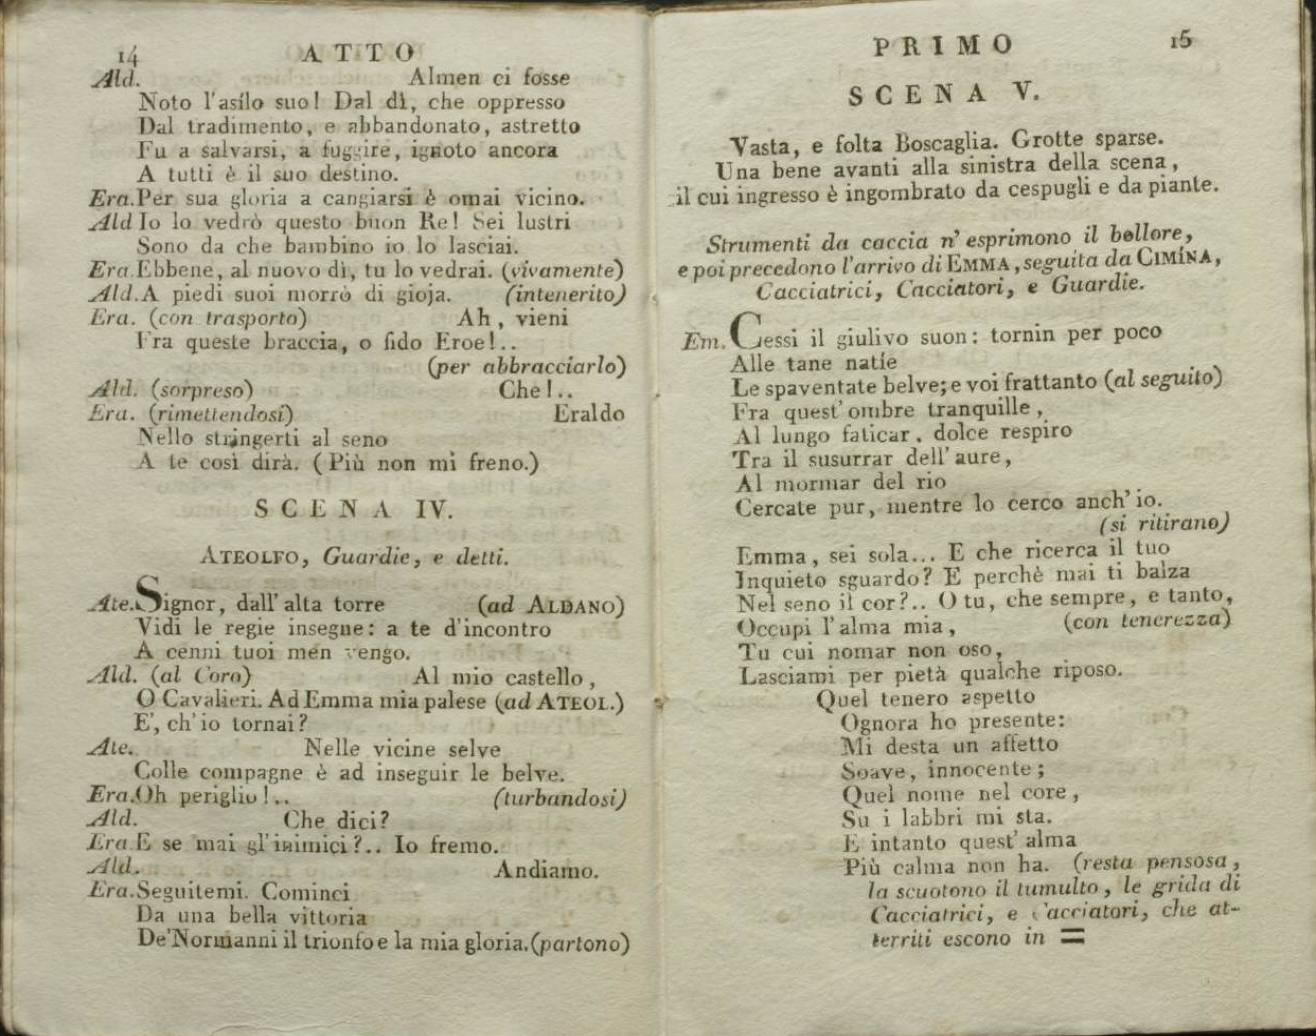 14 ATTO
Ald. Almen ci fosse
Noto l'asilo suo! Dal dì, che oppresso
Dal tradimento, e abbandonato, astretto
Fu a salvarsi, a fuggire, ignoto ancora
A tutti è il suo destino.
Era. Per sua gloria a cangiarsi è omai vicino.
Ald Io lo vedrò questo buon Re! Sei lustri
Sono da che bambino io lo lasciai.
Era. Ebbene, al nuovo dì, tu lo vedrai. (vivamente)
Ald. A piedi suoi morrò di gioja. (intenerito)
Era. (con trasporto) Ah, vieni
Fra queste braccia, o fido Eroe!..
(per abbracciarlo)
Ald. (sorpreso) Che!..
Era. (rimettendosi) Eraldo
Nello stringerti al seno
A te così dirà. (Più non mi freno.)
SCENA IV.
ATEOLFO, Guardie, e detti.
Ate. Signor, dall'alta torre (ad ALDANO)
Vidi le regie insegne: a te d'incontro
A cenni tuoi men vengo.
Ald. (al Coro) Al mio castello,
O Cavalieri. Ad Emma mia palese (ad ATEOL.)
E', ch'io tornai?
Ate. Nelle vicine selve
Colle compagne è ad inseguir le belve.
Era. Oh periglio!.. (turbandosi)
Ald. Che dici?
Era E se mai gl'inimici?.. Io fremo.
Ald. Andiamo.
Era. Seguitemi. Cominci
Da una bella vittoria
De'Normanni il trionfo e la mia gloria. (partono)
PRIMO 15
SCENA V.
Vasta, e folta Boscaglia. Grotte sparse.
Una bene avanti alla sinistra della scena,
il cui ingresso è ingombrato da cespugli e da piante.
Strumenti da caccia n'esprimono il bollore,
e poi precedono l'arrivo di EMMA, seguita da CIMINA,
Cacciatrici, Cacciatori, e Guardie.
Em. Cessi il giulivo suon: tornin per poco
Alle tane natie
Le spaventate belve; e voi frattanto (al seguito)
Fra quest'ombre tranquille,
Al lungo faticar, dolce respiro
Tra il susurrar dell'aure,
Al mormar del rio
Cercate pur, mentre lo cerco anch'io.
(si ritirano)
Emma, sei sola... E che ricerca il tuo
Inquieto sguardo? E perchè mai ti balza
Nel seno il cor?.. O tu, che sempre, e tanto,
Occupi l'alma mia, (con tenerezza)
Tu cui nomar non oso,
Lasciami per pietà qualche riposo.
Quel tenero aspetto
Ognora ho presente:
Mi desta un affetto
Soave, innocente;
Quel nome nel core,
Su i labbri mi sta.
E intanto quest'alma
Più calma non ha. (resta pensosa,
la scuotono il tumulto, le grida di
Cacciatrici, e Cacciatori, che at-
territi escono in =